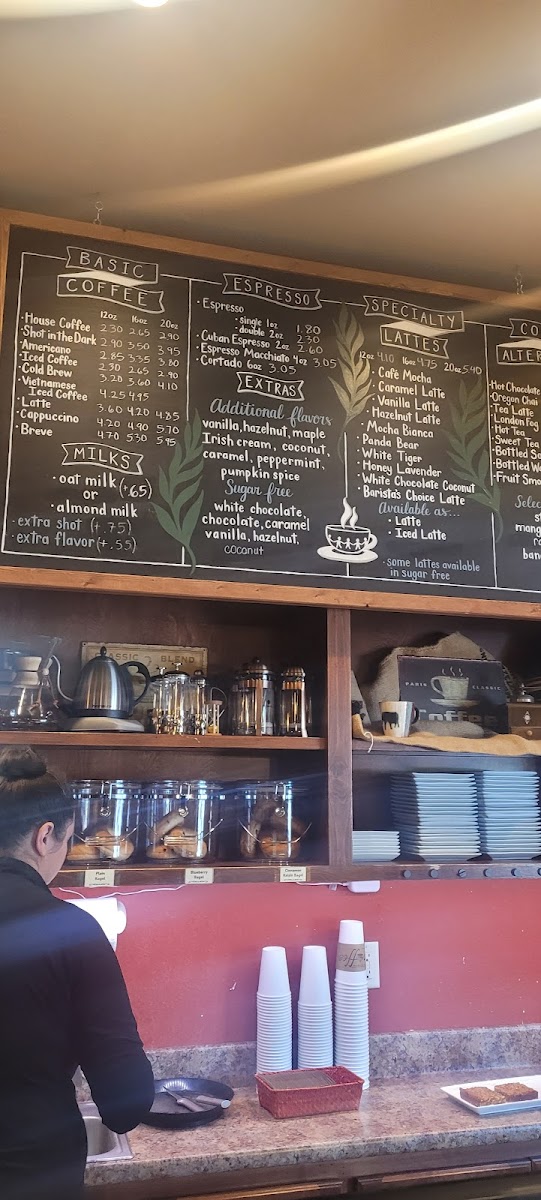 BASIC
COFFEE
12oz 16oz 20oz
• House Coffee 2.30 2.65 2.90
• Shot in the Dark 2.90 3.50 3.95
• Americano 2.85 3.35 3.80
• Iced Coffee 2.30 2.65 2.90
• Cold Brew 3.20 3.60 4.10
• Vietnamese
Iced Coffee 4.25 4.95
• Latte 3.60 4.20 4.85
• Cappuccino 4.20 4.90 5.70
• Breve 4.70 5.30 5.95
MILKS
• oat milk (+.65)
or
• almond milk
• extra shot (+.75)
• extra flavor (+.55)
ESPRESSO
• Espresso
• single 1oz 1.80
• double 2oz 2.30
• Cuban Espresso 2oz 2.60
• Espresso Macchiato 4oz 3.05
• Cortado 6oz 3.05
EXTRAS
Additional flavors
vanilla, hazelnut, maple
Irish cream, coconut,
caramel, peppermint,
pumpkin spice
Sugar free
white chocolate,
chocolate, caramel
vanilla, hazelnut,
coconut
SPECIALTY
LATTES
12oz 4.10 16oz 4.75 20oz 5.40
• Café Mocha
• Caramel Latte
• Vanilla Latte
• Hazelnut Latte
• Mocha Bianca
• Panda Bear
• White Tiger
• Honey Lavender
• White Chocolate Coconut
• Barista's Choice Latte
Available as...
• Latte
• Iced Latte
• some lattes available
in sugar free
CO
ALTER
• Hot Chocolate
• Oregon Chai
• Tea Latte
• London Fog
• Hot Tea
• Sweet Tea
• Bottled So
• Bottled Wa
• Fruit Smo
Selec
st
mang
ban
CLASSIC BLEND
PARIS CLASSIC
Coffee
Plain
Bagel
Blueberry
Bagel
Cinnamon
Raisin Bagel